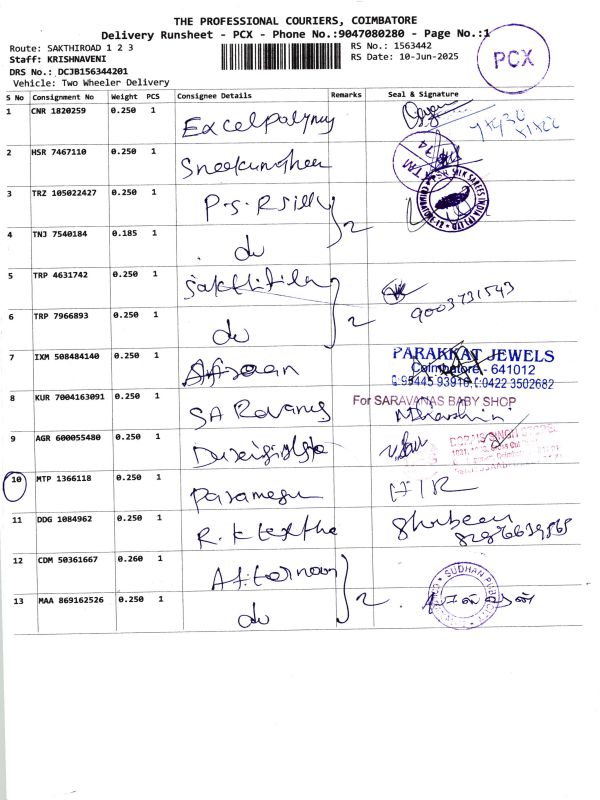 THE PROFESSIONAL COURIERS, COIMBATORE
Delivery Runsheet - PCX - Phone No.:9047080280 - Page No.:1
Route: SAKTHIROAD 1 2 3
RS No.: 1563442
Staff: KRISHNAVENI
RS Date: 10-Jun-2025
DRS No.: DCJB156344201
PCX
Vehicle: Two Wheeler Delivery
S No Consignment No Weight PCS Consignee Details Remarks Seal & Signature
1 CNR 1820259 0.250 1 Excelpolymy
2 HSR 7467110 0.250 1
3 TRZ 105022427 0.250 1 P.S.R silk
4 TNJ 7540184 0.185 1 do 2
5 TRP 4631742 0.250 1 Sakthitila
9003731543
6 TRP 7966893 0.250 1 do 2
7 IXM 508484140 0.250 1
PARAKKAT JEWELS
Coimbatore - 641012
C:95445 93916, C:0422 3502682
8 KUR 7004163091 0.250 1 SA Ravanas
For SARAVANAS BABY SHOP
9 AGR 600055480 0.250 1
10 MTP 1366118 0.250 1 Paramesu
11 DDG 1084962 0.250 1 R.k textha
12 CDM 50361667 0.260 1 Afternoon
SUDHAN PUBLICITY
13 MAA 869162526 0.250 1 do 2